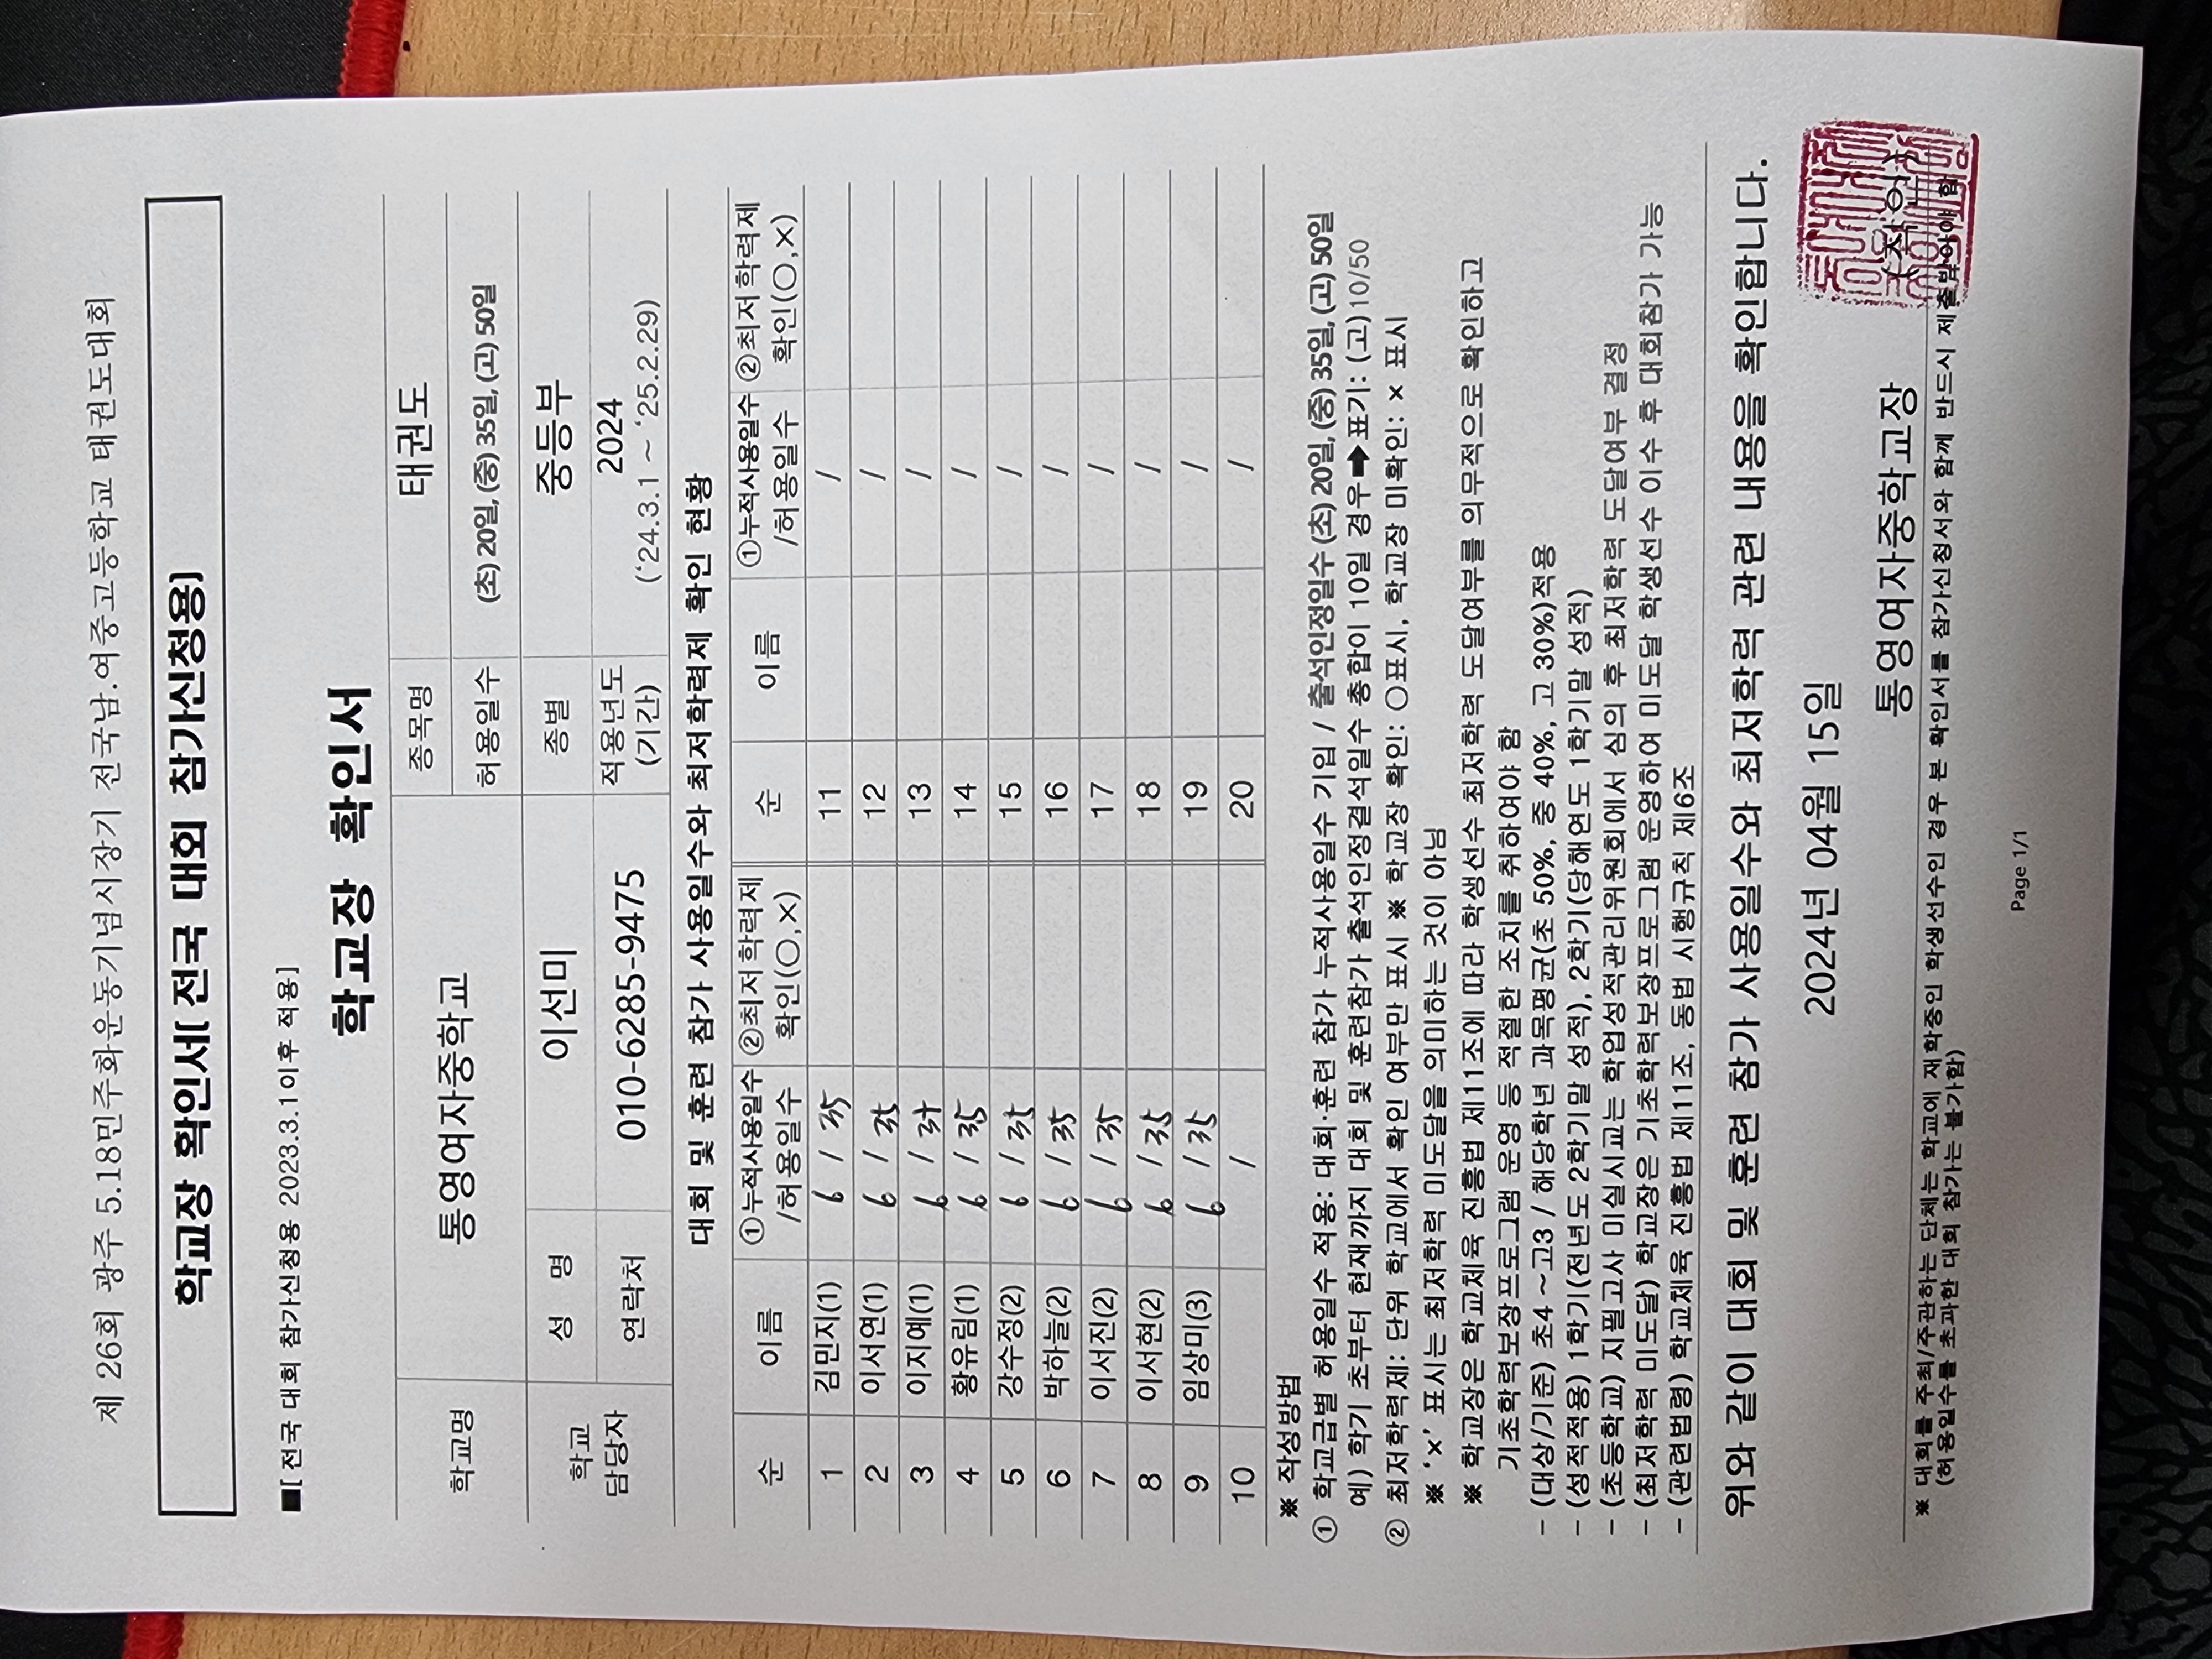 제 26회 광주 5.18민주화운동기념시장기 전국남.여중고등학교 태권도대회
학교장 확인서[ 전국 대회 참가신청용]
■[ 전국 대회 참가신청용 2023.3.1이후 적용]
학교장 확인서
학교명 통영여자중학교 종목명 태권도
허용일수 (초) 20일, (중) 35일, (고) 50일
학교 담당자 성 명 이선미 종별 중등부
연락처 010-6285-9475 적용년도 (기간) 2024 (‘24.3.1 ~ ‘25.2.29)
대회 및 훈련 참가 사용일수와 최저학력제 확인 현황
순 이름 ①누적사용일수 /허용일수 ②최저학력제 확인(○,×) 순 이름 ①누적사용일수 /허용일수 ②최저학력제 확인(○,×)
1 김민지(1) 6 / 35 11 /
2 이서연(1) 6 / 35 12 /
3 이지예(1) 6 / 35 13 /
4 황유림(1) 6 / 35 14 /
5 강수정(2) 6 / 35 15 /
6 박하늘(2) 6 / 35 16 /
7 이서진(2) 6 / 35 17 /
8 이서현(2) 6 / 35 18 /
9 임상미(3) 6 / 35 19 /
10 / 20 /
※ 작성방법
① 학교급별 허용일수 적용: 대회·훈련 참가 누적사용일수 기입 / 출석인정일수 (초) 20일, (중) 35일, (고) 50일
예) 학기 초부터 현재까지 대회 및 훈련참가 출석인정결석일수 총합이 10일 경우➡표기: (고)10/50
② 최저학력제: 단위 학교에서 확인 여부만 표시 ※ 학교장 확인: ○표시, 학교장 미확인: × 표시
※ ‘×’ 표시는 최저학력 미도달을 의미하는 것이 아님
※ 학교장은 학교체육 진흥법 제11조에 따라 학생선수 최저학력 도달여부를 의무적으로 확인하고
기초학력보장프로그램 운영 등 적절한 조치를 취하여야 함
- (대상/기준) 초4 ~고3 / 해당학년 과목평균(초 50%, 중 40%, 고 30%)적용
- (성적적용) 1학기(전년도 2학기말 성적), 2학기(당해연도 1학기말 성적)
- (초등학교) 지필고사 미실시교는 학업성적관리위원회에서 심의 후 최저학력 도달여부 결정
- (최저학력 미도달) 학교장은 기초학력보장프로그램 운영하여 미도달 학생선수 이수 후 대회참가 가능
- (관련법령) 학교체육 진흥법 제11조, 동법 시행규칙 제6조
위와 같이 대회 및 훈련 참가 사용일수와 최저학력 관련 내용을 확인합니다.
2024년 04월 15일
통영여자중학교장 (직인)
※ 대회를 주최/주관하는 단체는 학교에 재학중인 학생선수인 경우 본 확인서를 참가신청서와 함께 반드시 제출받아야 함
(허용일수를 초과한 대회 참가는 불가함)
Page 1/1